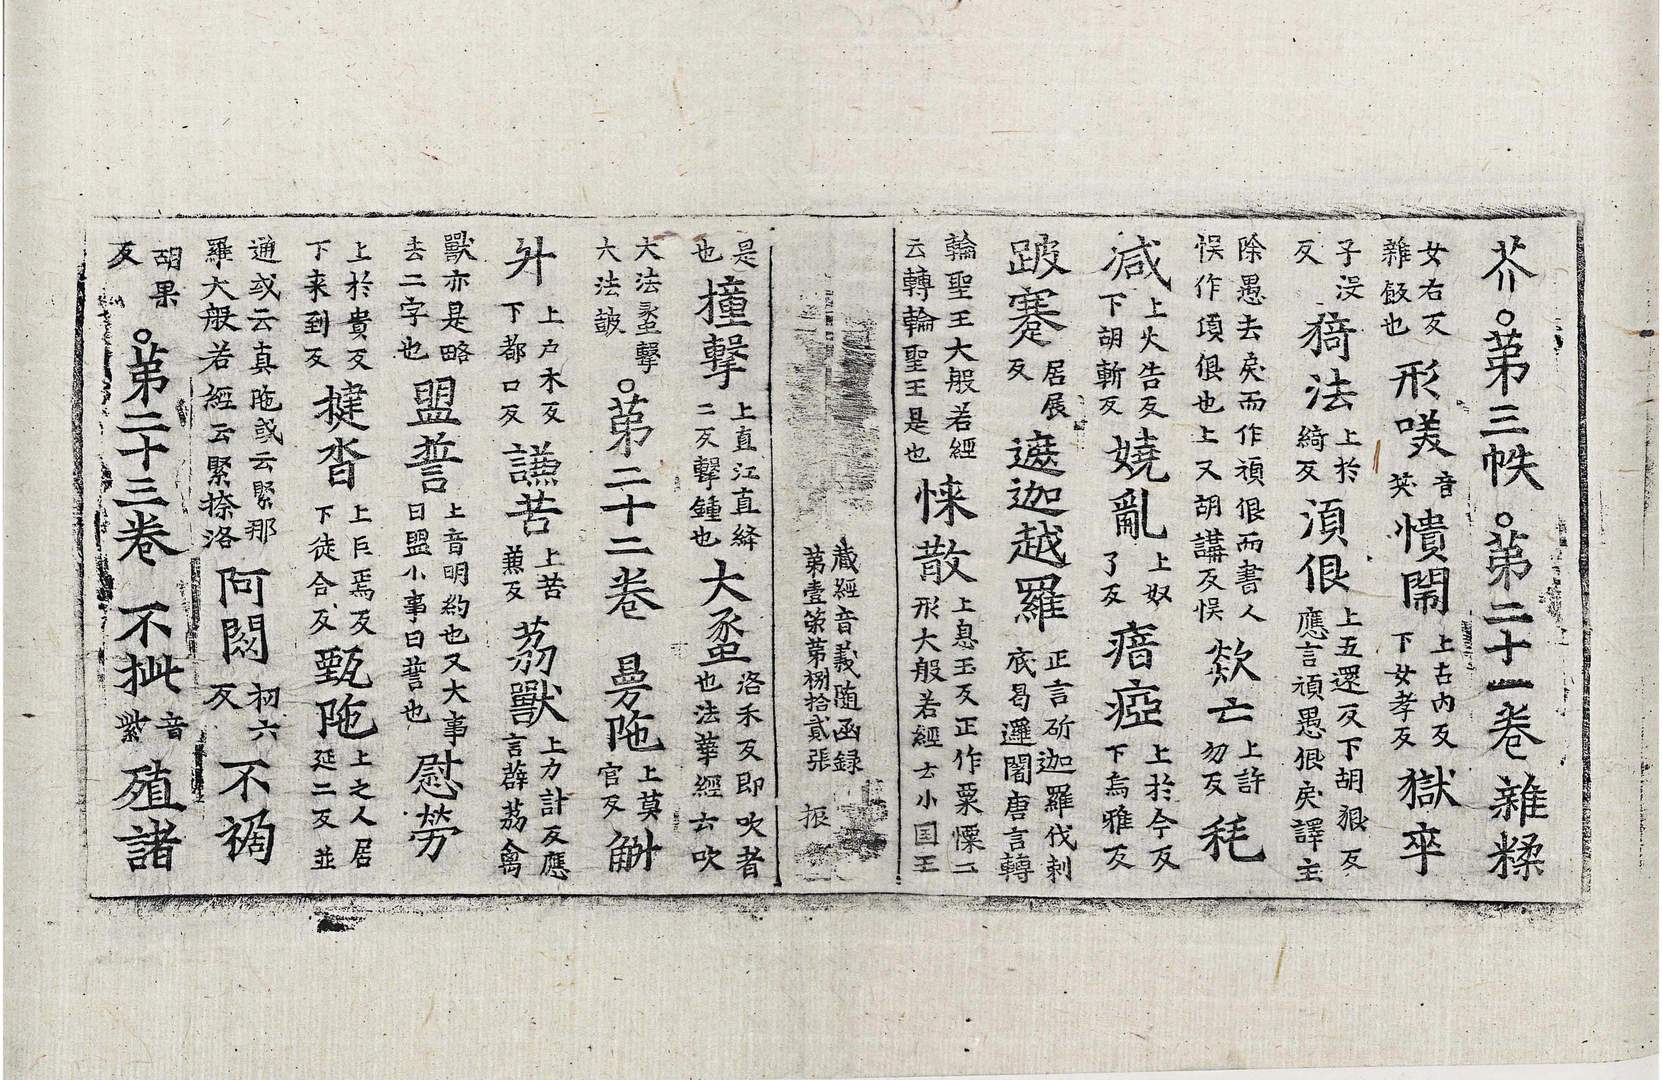 芥○第三帙○第二十一卷雜糅
女右反雜飯也形㗛音英憒閙上古内反下女孝反獄卒
子没反猗法上於綺反湏佷上五還反下胡狠反應言頑愚佷戾譯主
除愚去戾而作頑佷而書人悮作湏佷也上又胡講反悮欻亡上許勿反秏
減上火告反下胡斬反嬈亂上奴了反瘖瘂上於今反下烏雅反
跛蹇居展反遮迦越羅正言斫迦羅伐剌底曷邏闍唐言轉
輪聖王大般若經云轉輪聖王是也悚散上息玉反正作粟慄二形大般若經云小国王
藏經音義随函録第壹第捌拾貳張 振
是也撞擊上直江直絳二反擊鍾也大蠡洛禾反即吹者也法華經云吹
大法蠡擊大法皷○第二十二卷曼陁上莫官反斛
斗上户木反下都口反謙苦上苦兼反荔獸上力計反應言薜荔禽
獸亦是略去二字也盟誓上音明約也又大事曰盟小事曰誓也慰勞
上於貴反下来到反揵沓上巨焉反下徒合反甄陁上之人居延二反並
通或云真陁或云緊那羅大般若經云緊捺洛阿閦初六反不禍
胡果反○第二十三卷不㧗音紫殖諸